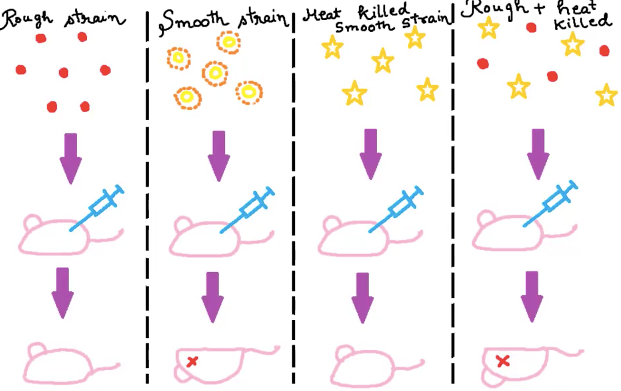 Rough strain
Smooth strain
Heat killed
Smooth Strain
Rough + heat
killed